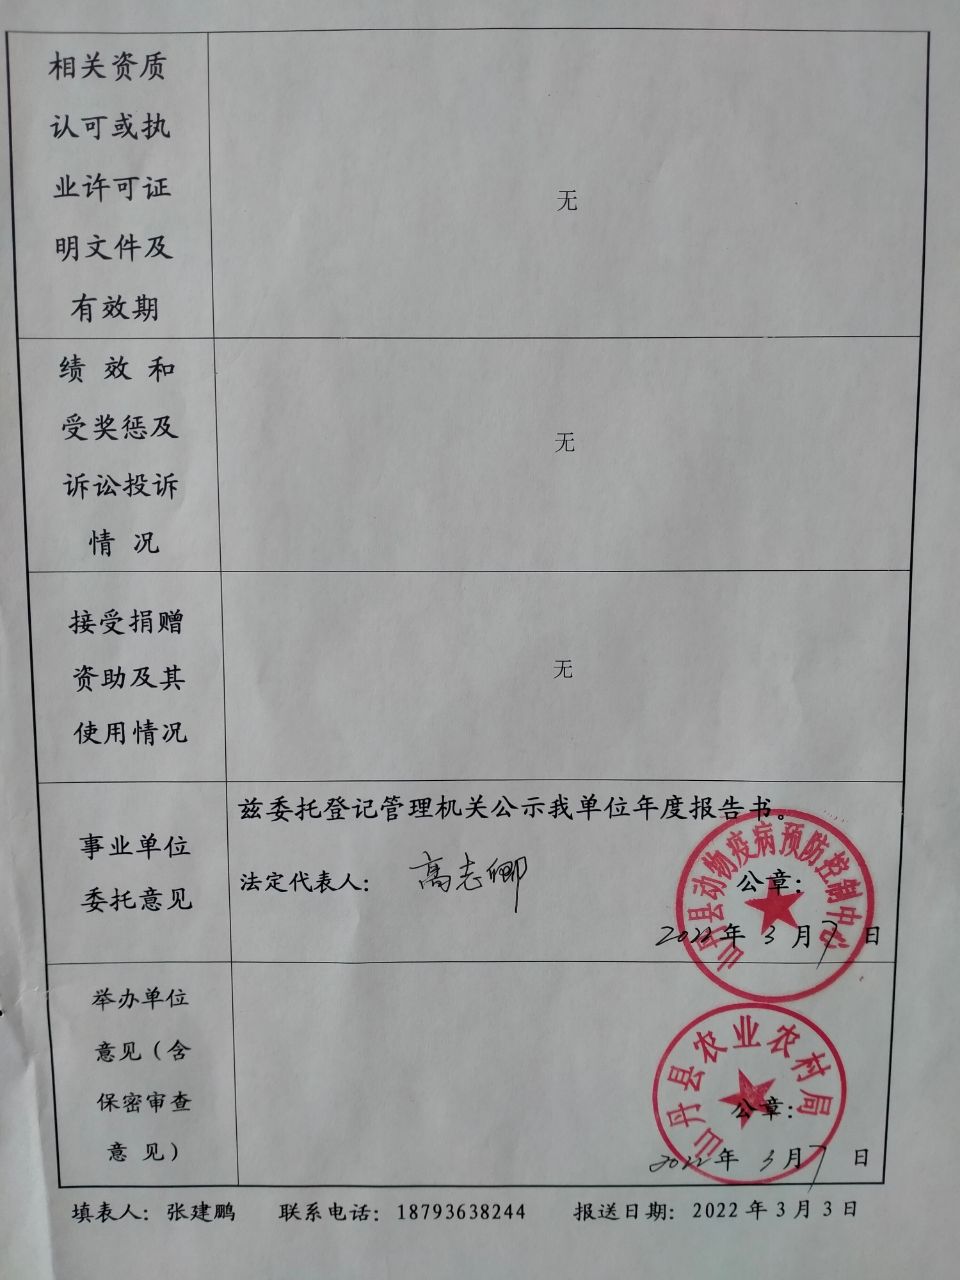 相关资质
认可或执
业许可证
明文件及
有效期
无
绩效和
受奖惩及
诉讼投诉
情况
无
接受捐赠
资助及其
使用情况
无
事业单位
委托意见
兹委托登记管理机关公示我单位年度报告书。
法定代表人：高志卿
公章：
2022年3月7日
山丹县动物疫病预防控制中心
举办单位
意见（含
保密审查
意见）
公章：
2022年3月7日
山丹县农业农村局
填表人：张建鹏 联系电话：18793638244 报送日期：2022年3月3日